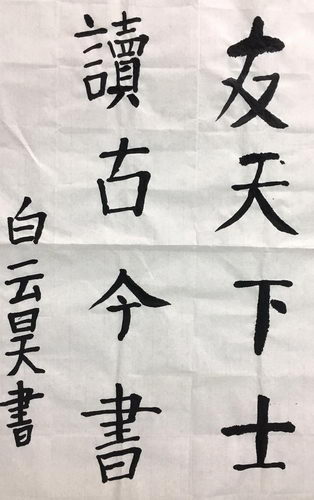 友天下士
讀古今書
白云昊書